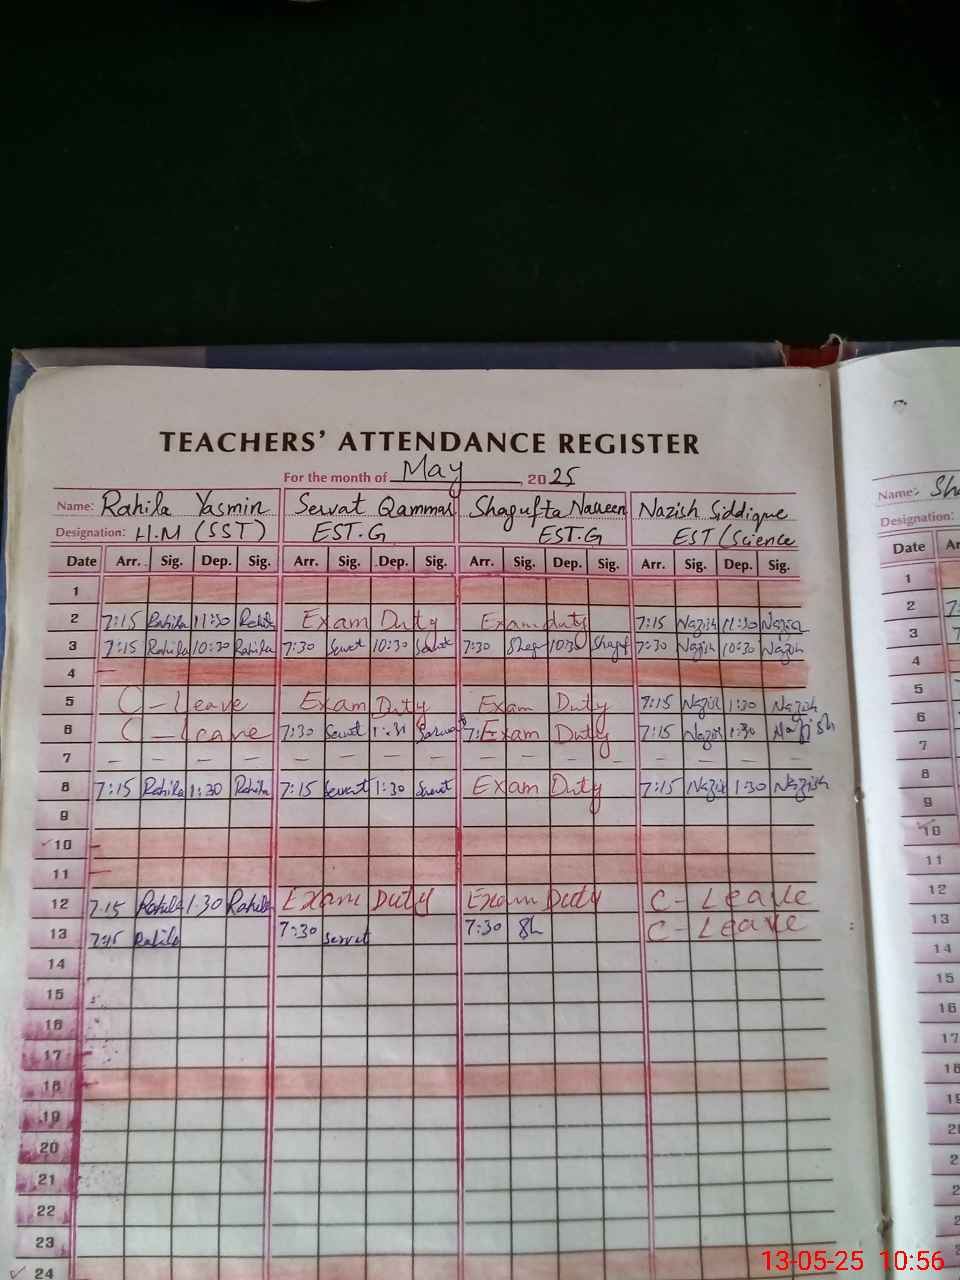 TEACHERS' ATTENDANCE REGISTER
For the month of May, 2025
Name: Rahila Yasmin Servat Qammar Shagufta Naveen Nazish Siddique
Designation: H.M (SST) EST.G EST.G EST (Science
Date Arr. Sig. Dep. Sig. Arr. Sig. Dep. Sig. Arr. Sig. Dep. Sig. Arr. Sig. Dep. Sig.
1
2 7:15 Rahila 11:30 Rahila Exam Duty Exam duty 7:15 Nazish 11:30 Nazish
3 7:15 Rahila 10:30 Rahila 7:30 Servt 10:30 Servt 7:30 Shag 10:30 Shagf 7:30 Nazish 10:30 Nazish
4
5 C - Leave Exam Duty Exam Duty 7:15 Nazish 1:30 Nazish
6 C - Leave 7:30 Servt 1:31 Servat 7: Exam Duty 7:15 Nazish 1:30 Nazish
7 - - - - - - - - - - - - - - - -
8 7:15 Rahila 1:30 Rahila 7:15 Servat 1:30 Servt Exam Duty 7:15 Nazish 1:30 Nazish
9
10
11
12 7:15 Rahila 1:30 Rahila Exam Duty Exam Duty C - Leave
13 7:15 Rahila 7:30 Servat 7:30 Sh C - Leave
14
15
16
17
18
19
20
21
22
23
24
Name: Sh
Designation:
Date Ar
1
2 7:
3
4
5
6
7
8
9
10
11
12
13
14
15
16
17
18
19
13-05-25 10:56